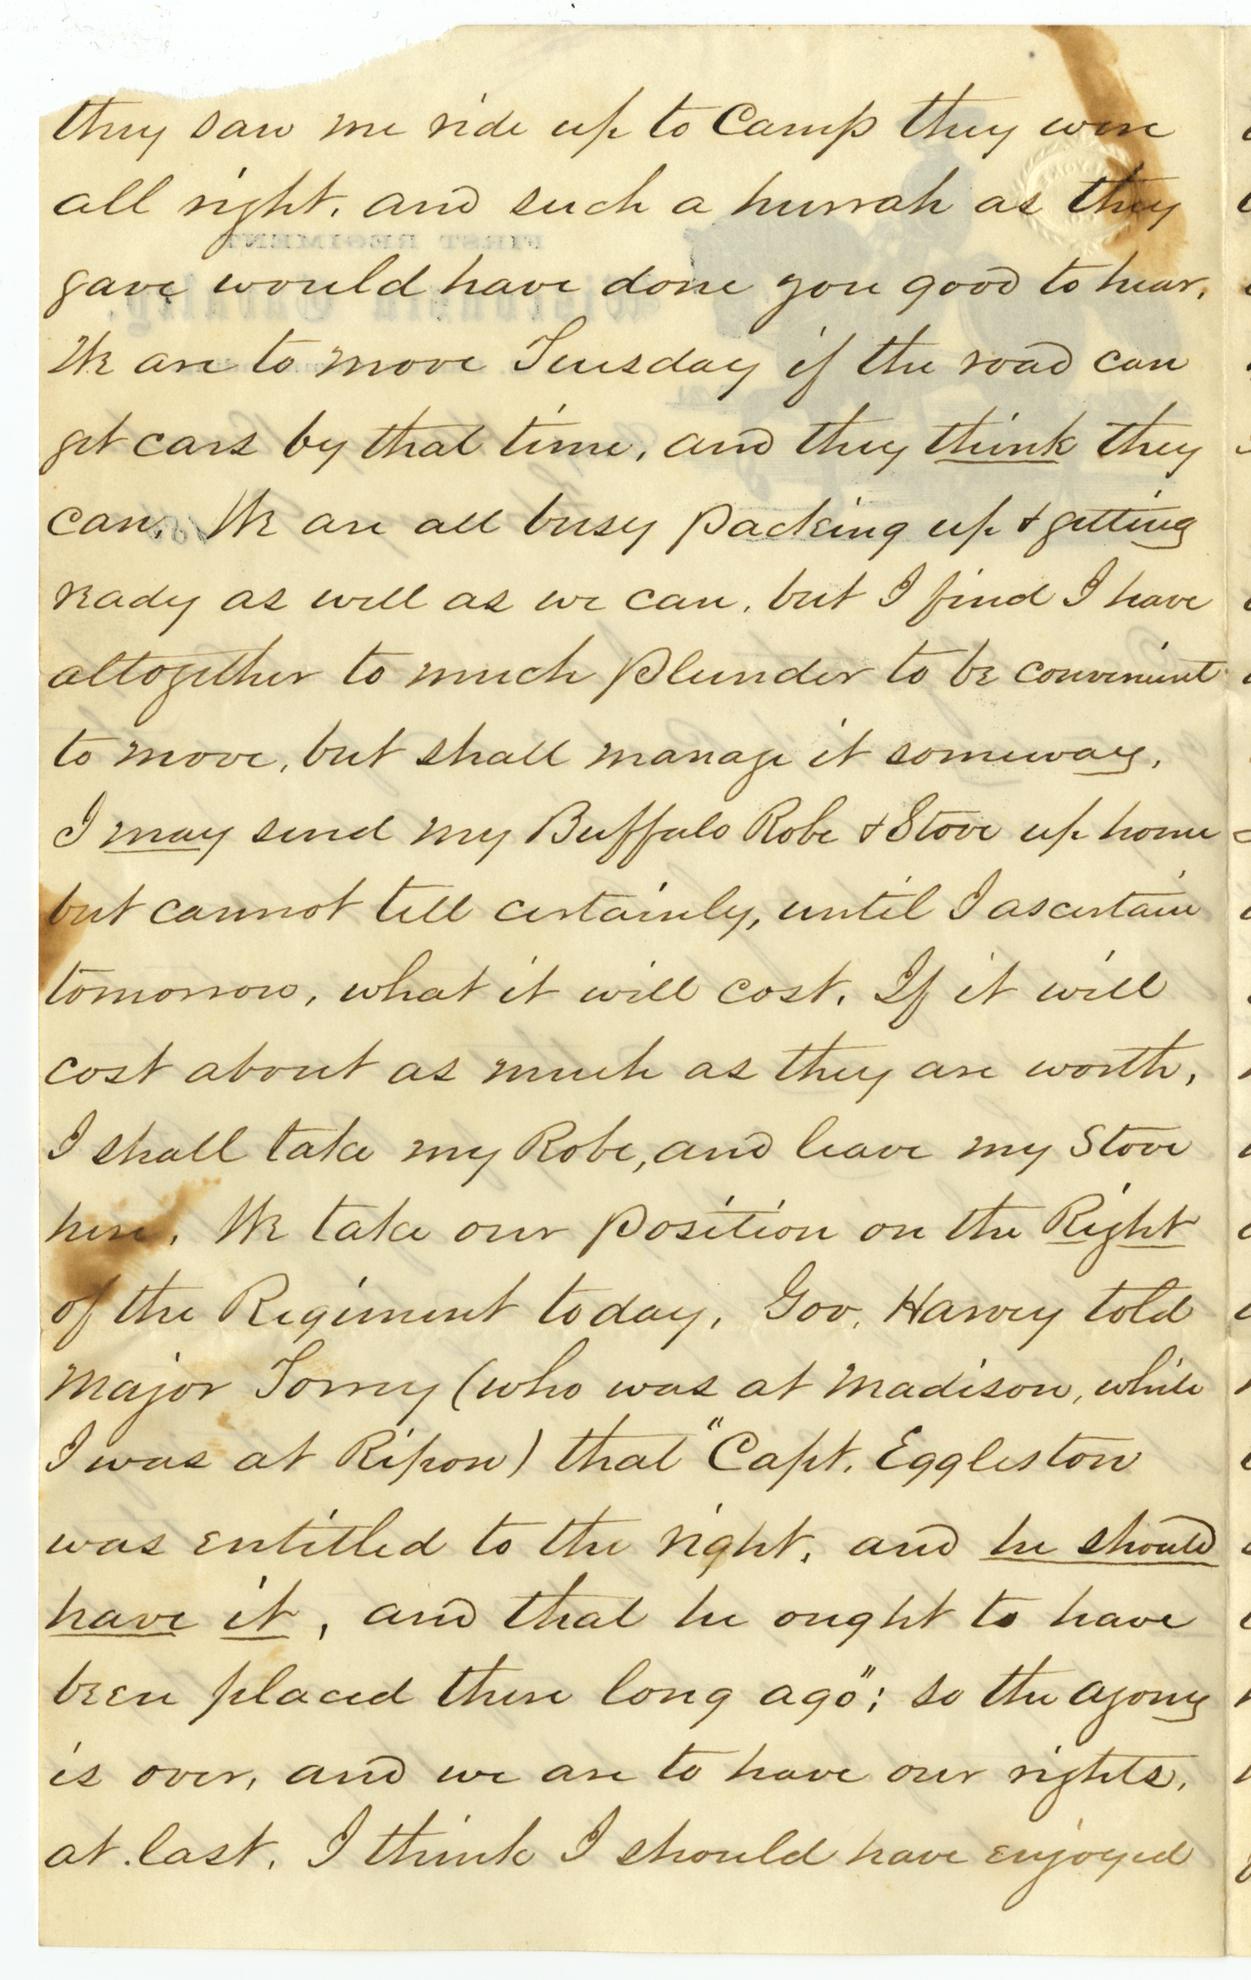 they saw me ride up to Camp they were
all right. and such a hurrah as they
gave would have done you good to hear.
We are to move Tuesday if the road can
get cars by that time, and they think they
can. We are all busy packing up & getting
ready as well as we can. but I find I have
altogether to much plunder to be convenient
to move, but shall manage it someway.
I may send my Buffalo Robe & Stove up home
but cannot tell certainly, until I ascertain
tomorrow, what it will cost. If it will
cost about as much as they are worth,
I shall take my Robe, and leave my Stove
here. We take our position on the Right
of the Regiment today. Gov. Harvey told
Major Torrey (who was at Madison, while
I was at Ripon) that "Capt. Eggleston
was entitled to the right, and he should
have it, and that he ought to have
been placed there long ago"; so the agony
is over, and we are to have our rights,
at last. I think I should have enjoyed
FIRST REGIMENT
Wisconsin Cavalry.